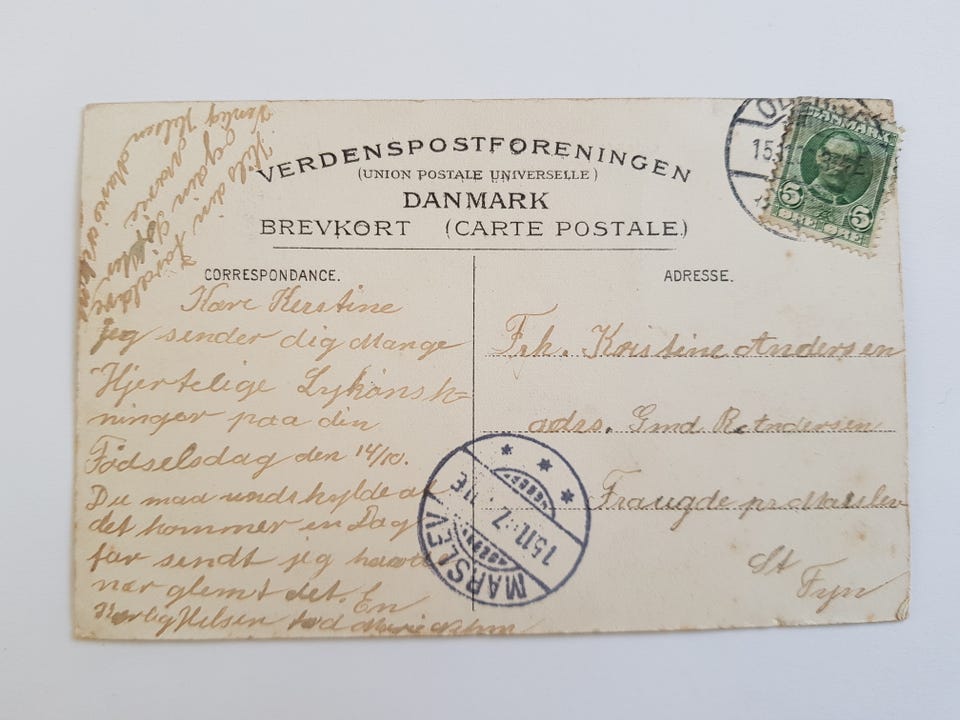 VERDENSPOSTFORENINGEN
(UNION POSTALE UNIVERSELLE)
DANMARK
BREVKORT (CARTE POSTALE.)
CORRESPONDANCE.
Kære Kerstine
jeg sender dig Mange
Hjertelige Lykønsk=
ninger paa din
Födselsdag den 14/10.
Du maa undskylde at
det kommer en Dag
for sendt jeg havd
nær glemt det. En
Venlig Hilsen
Hils din Forældre
og din Søster
Venlig Hilsen
ADRESSE.
Frk. Kristine Andersen
adrs. Gmd R. Andersen
Fraugde pr Marslev
St
Fyn
DANMARK
5 5
ØRE ØRE
MARSLEV
15.11.07